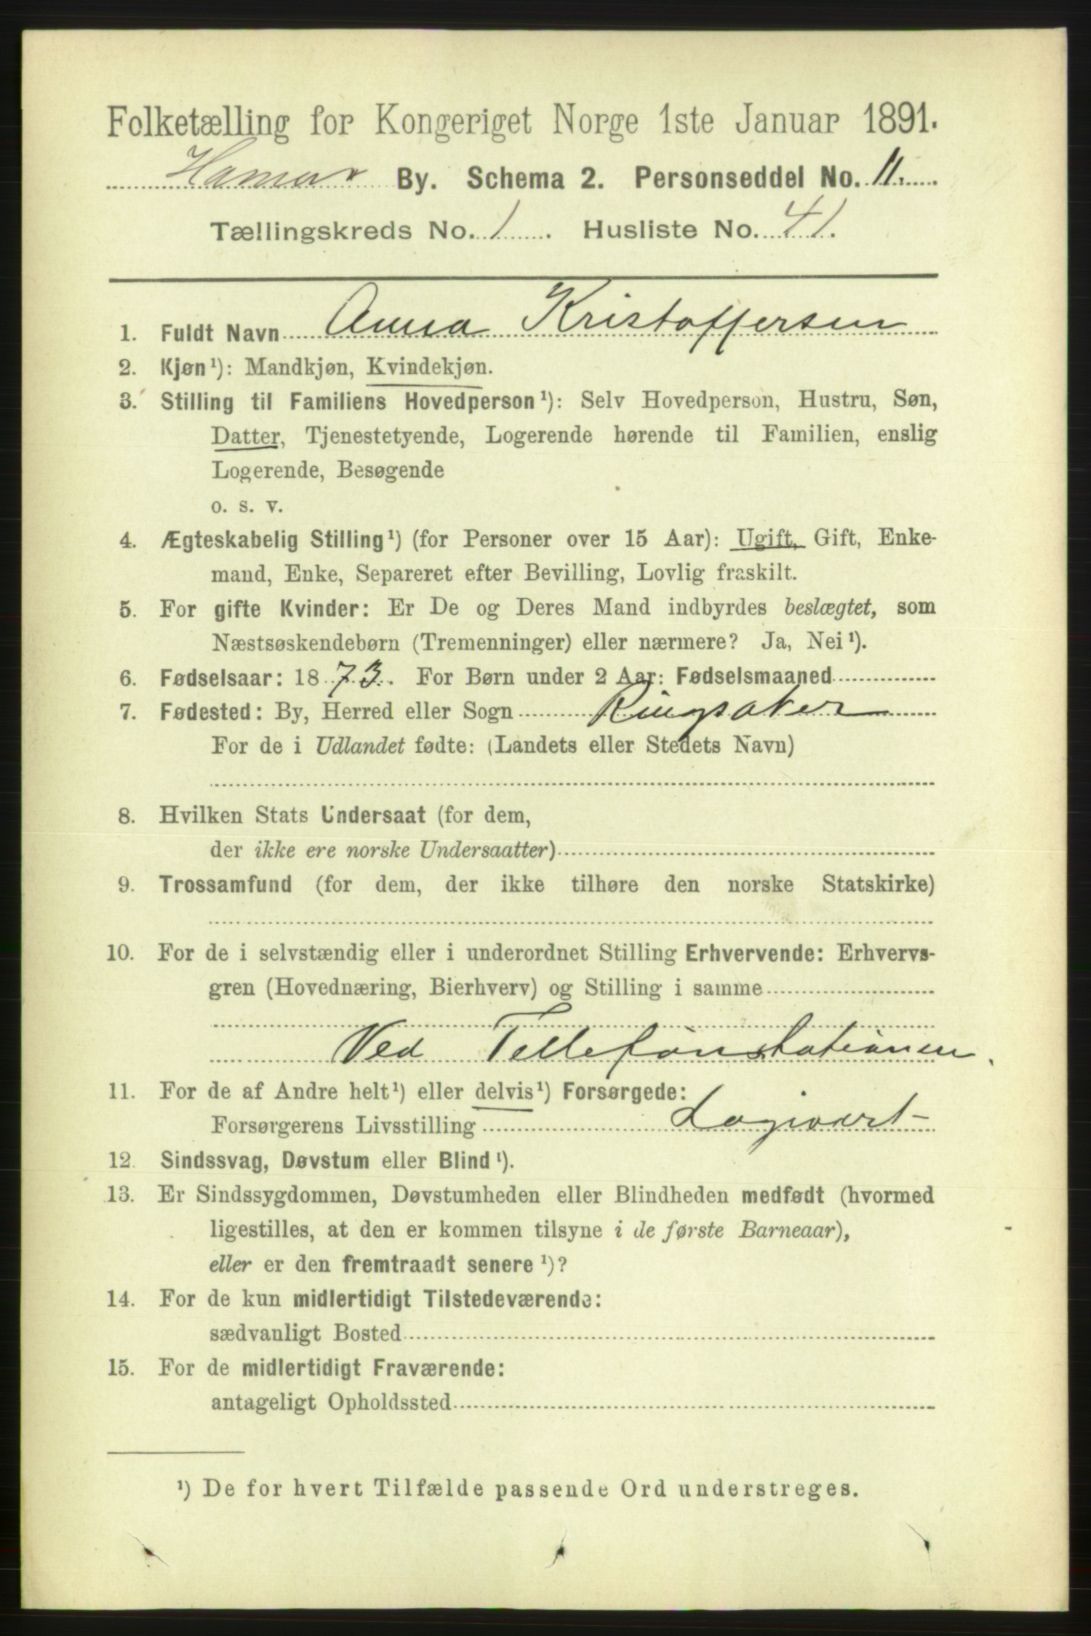 Folketælling for Kongeriget Norge 1ste Januar 1891.
Hamar By. Schema 2. Personseddel No. 11.
Tællingskreds No. 1. Husliste No. 41.
1. Fuldt Navn Anna Kristoffersen
2. Kjøn¹): Mandkjøn, Kvindekjøn.
3. Stilling til Familiens Hovedperson¹): Selv Hovedperson, Hustru, Søn,
Datter, Tjenestetyende, Logerende hørende til Familien, enslig
Logerende, Besøgende
o. s. v.
4. Ægteskabelig Stilling¹) (for Personer over 15 Aar): Ugift, Gift, Enke-
mand, Enke, Separeret efter Bevilling, Lovlig fraskilt.
5. For gifte Kvinder: Er De og Deres Mand indbyrdes beslægtet, som
Næstsøskendebørn (Tremenninger) eller nærmere? Ja, Nei¹).
6. Fødselsaar: 1873. For Børn under 2 Aar: Fødselsmaaned
7. Fødested: By, Herred eller Sogn Ringsaker
For de i Udlandet fødte: (Landets eller Stedets Navn)
8. Hvilken Stats Undersaat (for dem,
der ikke ere norske Undersaatter)
9. Trossamfund (for dem, der ikke tilhøre den norske Statskirke)
10. For de i selvstændig eller i underordnet Stilling Erhvervende: Erhvervs-
gren (Hovednæring, Bierhverv) og Stilling i samme
Ved Tellefonstationen.
11. For de af Andre helt¹) eller delvis¹) Forsørgede:
Forsørgerens Livsstilling Logivært
12. Sindssvag, Døvstum eller Blind¹).
13. Er Sindssygdommen, Døvstumheden eller Blindheden medfødt (hvormed
ligestilles, at den er kommen tilsyne i de første Barneaar),
eller er den fremtraadt senere¹)?
14. For de kun midlertidigt Tilstedeværende:
sædvanligt Bosted
15. For de midlertidigt Fraværende:
antageligt Opholdssted
¹) De for hvert Tilfælde passende Ord understreges.